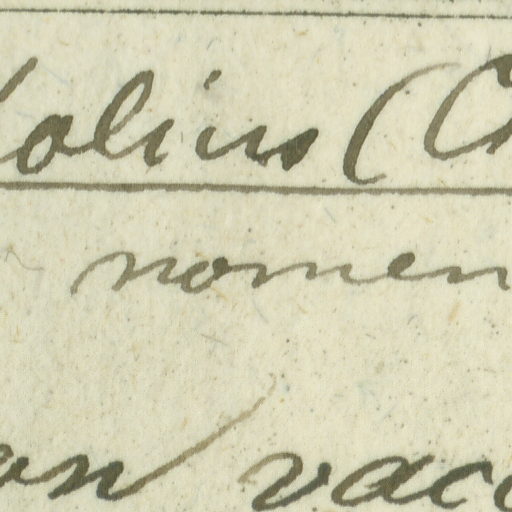 olius (C
nomen
on vac